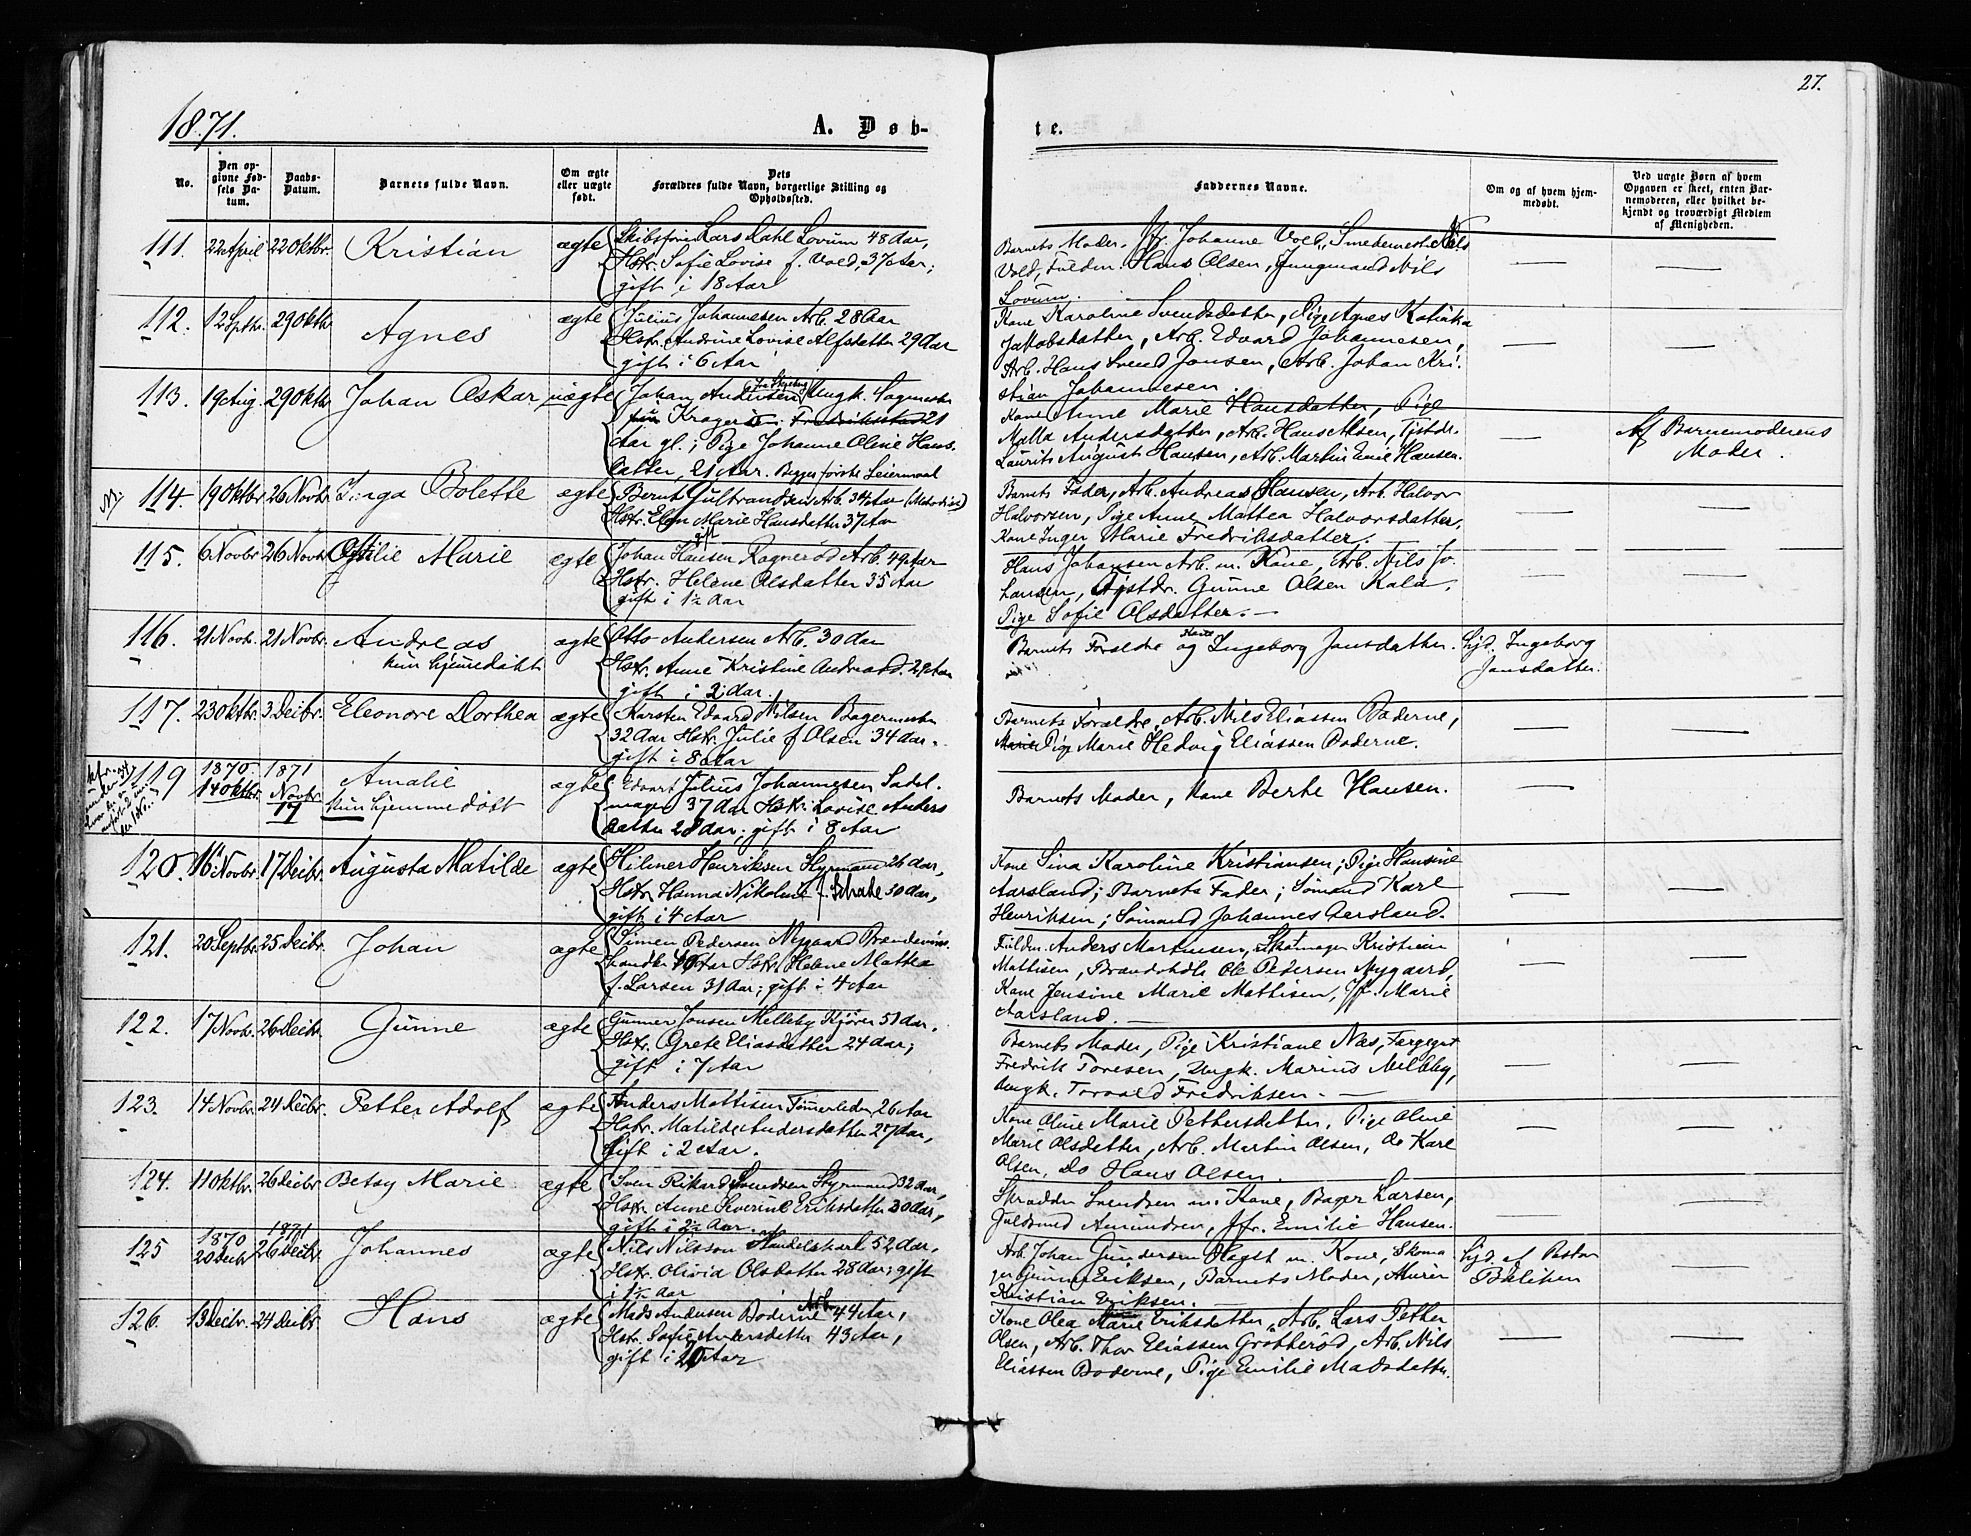 27.
1871.
A. Døb-
te.
No.
Den op-
givne Fød-
sels Da-
tum.
Daabs-
Datum.
Barnets fulde Navn.
Om ægte
eller uægte
født.
Dets
Forældres fulde Navn, borgerlige Stilling og
Opholdssted.
Faddernes Navne.
Om og af hvem hjem-
medøbt.
Ved uægte Børn af hvem
Opgaven er skeet, enten Bar-
nemoderen, eller hvilket be-
kjendt og troværdigt Medlem
af Menigheden.
111. 22 April 22 Oktbr. Kristian ægte
Lars Dahl Lovum 48 Aar,
Hstr. Sofie Lovise f. Vold, 37 Aar;
gift i 18 Aar
Barnets Moder, Jfr. Johanne Vold, Smedemester Nils
Vold, Fuldm. Hans Olsen, Jungmand Nils
Lovum.
112. 12 Septbr. 29 Oktbr. Agnes ægte
Julius Johannesen Arb. 28 Aar
Hstr. Andrine Lovise Alfsdatter 29 Aar
gift i 6 Aar
Kone Karoline Svendsdatter, Pige Agnes
Jakobsdatter, Arb. Edvard Johannesen,
Arb. Hans Svend Jonsen, Arb. Johan Kri-
stian Johannesen.
113. 19 Aug. 29 Oktbr. Johan Oskar uægte
Johan Andersen Ungk.
Kragerøen Fredrikstad 21
Aar gl.; Pige Johanne Oline Hans-
datter, 21 Aar. Begges første Leiermaal
Kone Anne Marie Hansdatter, Pige
Malla Andersdatter, Arb. Hans Olsen,
Laurits August Hansen, Arb. Martin Emil Hansen.
Af Barnemoderens
Moder.
114. 19 Oktbr 26 Novbr Inga Bolette ægte
Bernt Gulbrandsen Arb. 34 Aar (Methodist)
Hstr. Elen Marie Hansdatter 37 Aar
gift
Barnets Fader, Arb. Andreas Hansen, Arb. Halvor
Halvorsen, Pige Anne Mathea Halvorsdatter,
Kone Inger Marie Fredriksdatter.
115. 6 Novbr 26 Novbr Otilie Marie ægte
Johan Hansen Ragnerød Arb. 49 Aar
Hstr. Helene Olsdatter 35 Aar
gift i 1½ Aar
Hans Johansen Arb. m. Kone, Arb. Nils Jo-
hansen, Tjstdr. Gunne Olsen Kala,
Pige Sofie Olsdatter.
116. 21 Novbr. 21 Novbr. Andreas ægte
kun hjemmedøbt
Otto Andersen Arb. 30 Aar
Hstr. Anne Kristine Andreasd. 29 Aar
gift i 2 Aar.
Barnets Forældre og Kone Ingeborg Jonsdatter.
Hjd. Ingeborg
Jonsdatter.
117. 23 Oktbr. 3 Decbr. Eleonore Dorthea ægte
Karsten Edvard Nilsen Bagermester
32 Aar Hstr. Julie f. Olsen 34 Aar.
gift i 8 Aar
Barnets Forældre, Arb. Nils Eliassen Boderne,
Pige Marie Hedvig Eliassen Boderne.
119 1870. 14 Oktbr. 1871 Novbr. 17 Amalie ægte
kun hjemmedøbt
Edvart Julius Johannesen Sadel-
mager 37 Aar Hstr. Lovise Anders-
datter 28 Aar; gift i 8 Aar
Barnets Moder, Kone Berte Hansen.
120. 16 Novbr. 17 Decbr. Augusta Matilde ægte
Hilmer Henriksen Styrmand 26 Aar,
Hstr. Hanna Nikoline f. Schade 30 Aar,
gift i 4 Aar
Kone Sina Karoline Kristiansen; Pige Hansine
Aarsland; Barnets Fader; Sømand Karl
Henriksen; Sømand Johannes Aarsland.
121. 20 Septbr. 25 Decbr. Johan ægte
Simen Pedersen Nygaard Brændevins-
handler Aar Hstr. Helene Mathea
f. Larsen 31 Aar; gift i 4 Aar
Fuldm. Anders Martinsen, Skomager Kristian
Mattisen, Brændvhdlr Ole Pedersen Nygaard,
Kone Jensine Marie Mathisen, Jfr. Marie
Aarsland.
122. 17 Novbr. 26 Decbr. Gunne ægte
Gunner Jonsen Melleby Kjører 51 Aar.
Hstr. Grete Eliasdatter 24 Aar;
gift i 7 Aar
Barnets Moder, Pige Kristiane Næs,
Fredrik Toresen, Ungk. Marius Melleby,
Ungk. Torvald Fredriksen.
123. 14 Novbr. 24 Decbr. Petter Adolf ægte
Anders Mattisen 26 Aar
Hstr. Matilde Andersdatter 27 Aar,
gift i 2 Aar.
Kone Oline Marie Pettersdatter, Pige Oline
Marie Olsdatter, Arb. Martin Olsen, Do Karl
Olsen, Do Hans Olsen.
124. 11 Oktbr. 26 Decbr Betsy Marie ægte
Sven Rikard Svendsen Styrmand 32 Aar,
Hstr. Anne Severine Eriksdatter 30 Aar,
gift i 2½ Aar.
Svendsen m. Kone, Bager Larsen,
Guldsmed Amundsen, Jfr. Emilie Hansen.
125 1870 20 Decbr 1871 26 Decbr. Johannes ægte
Nils Nilsson Handelskarl 52 Aar,
Hstr. Olivia Olsdatter 28 Aar; gift
i 1½ Aar
Arb. Johan Gundersen Hogst m. Kone, Skoma-
ger Gunner Eriksen, Barnets Moder, Murer
Kristian Eriksen.
Hjd. af Pastor
126. 13 Decbr. 24 Decbr. Hans ægte
Mads Andersen Boderne Arb. 44 Aar,
Hstr. Sofie Andersdatter 43 Aar,
gift i 20 Aar
Kone Olea Marie Eriksdatter, Arb. Lars Petter
Olsen, Arb. Thor Eliassen Grotterød, Arb. Nils
Eliassen Boderne, Pige Emilie Madsdatter.